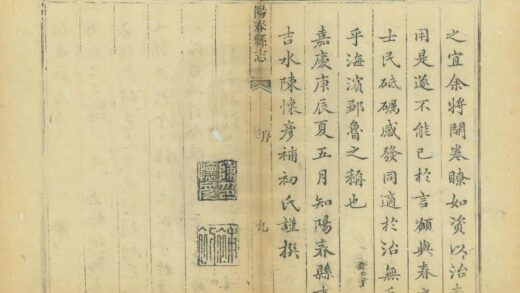 之宜余將開卷瞭如資以治
用是遂不能已於言願與春之
士民砥礪感發同適於治無
乎海濱鄒魯之稱也
嘉慶庚辰夏五月知陽春縣事
吉水陳懷彥補初氏謹撰
陽春縣志
序
九